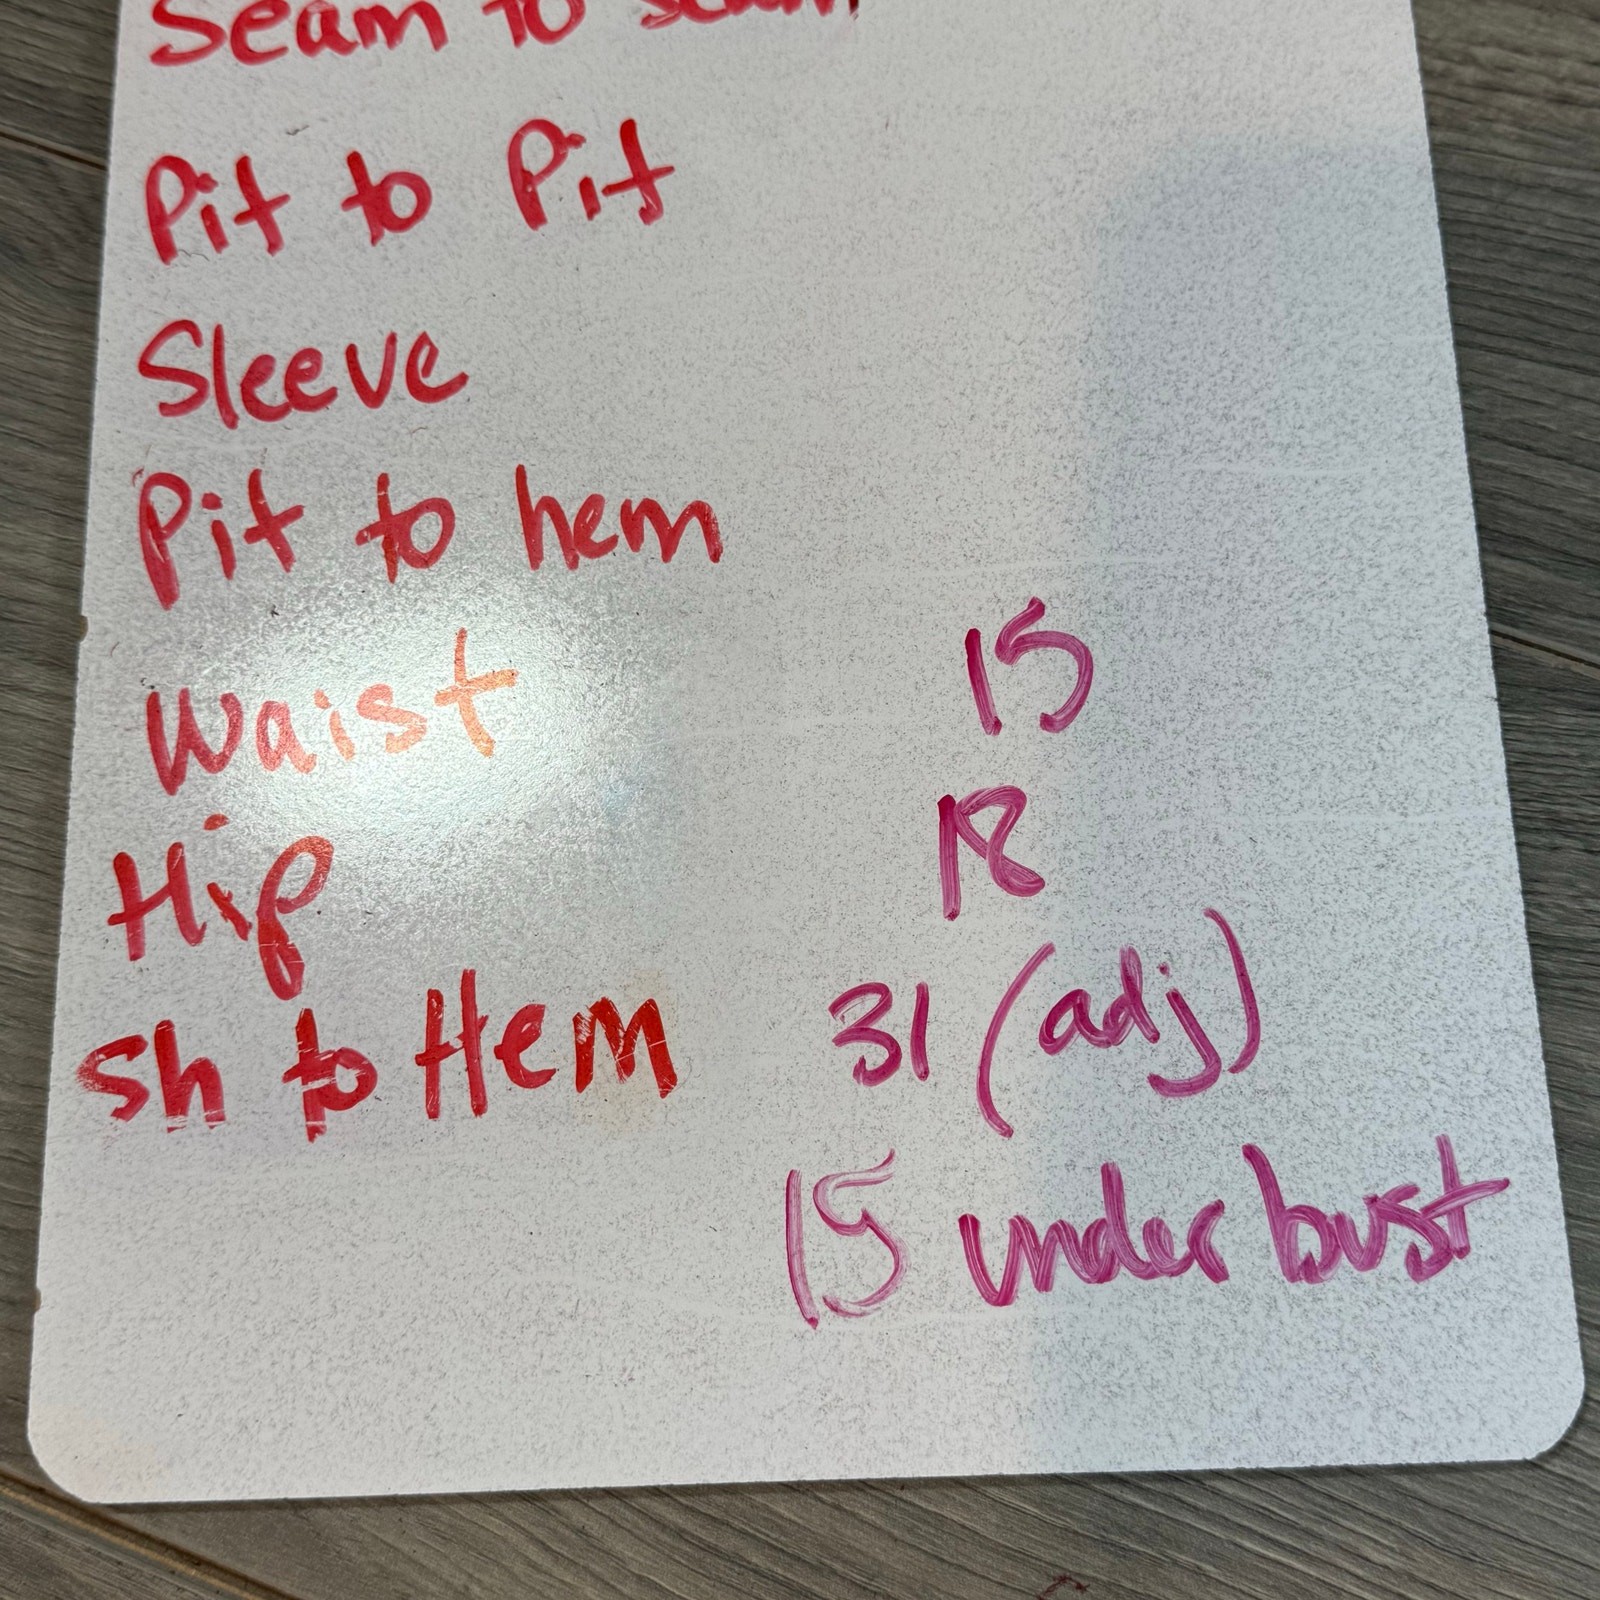 Seam to seam
Pit to Pit
Sleeve
Pit to hem
Waist 15
Hip 18
Sh to Hem 31 (adj)
15 under bust